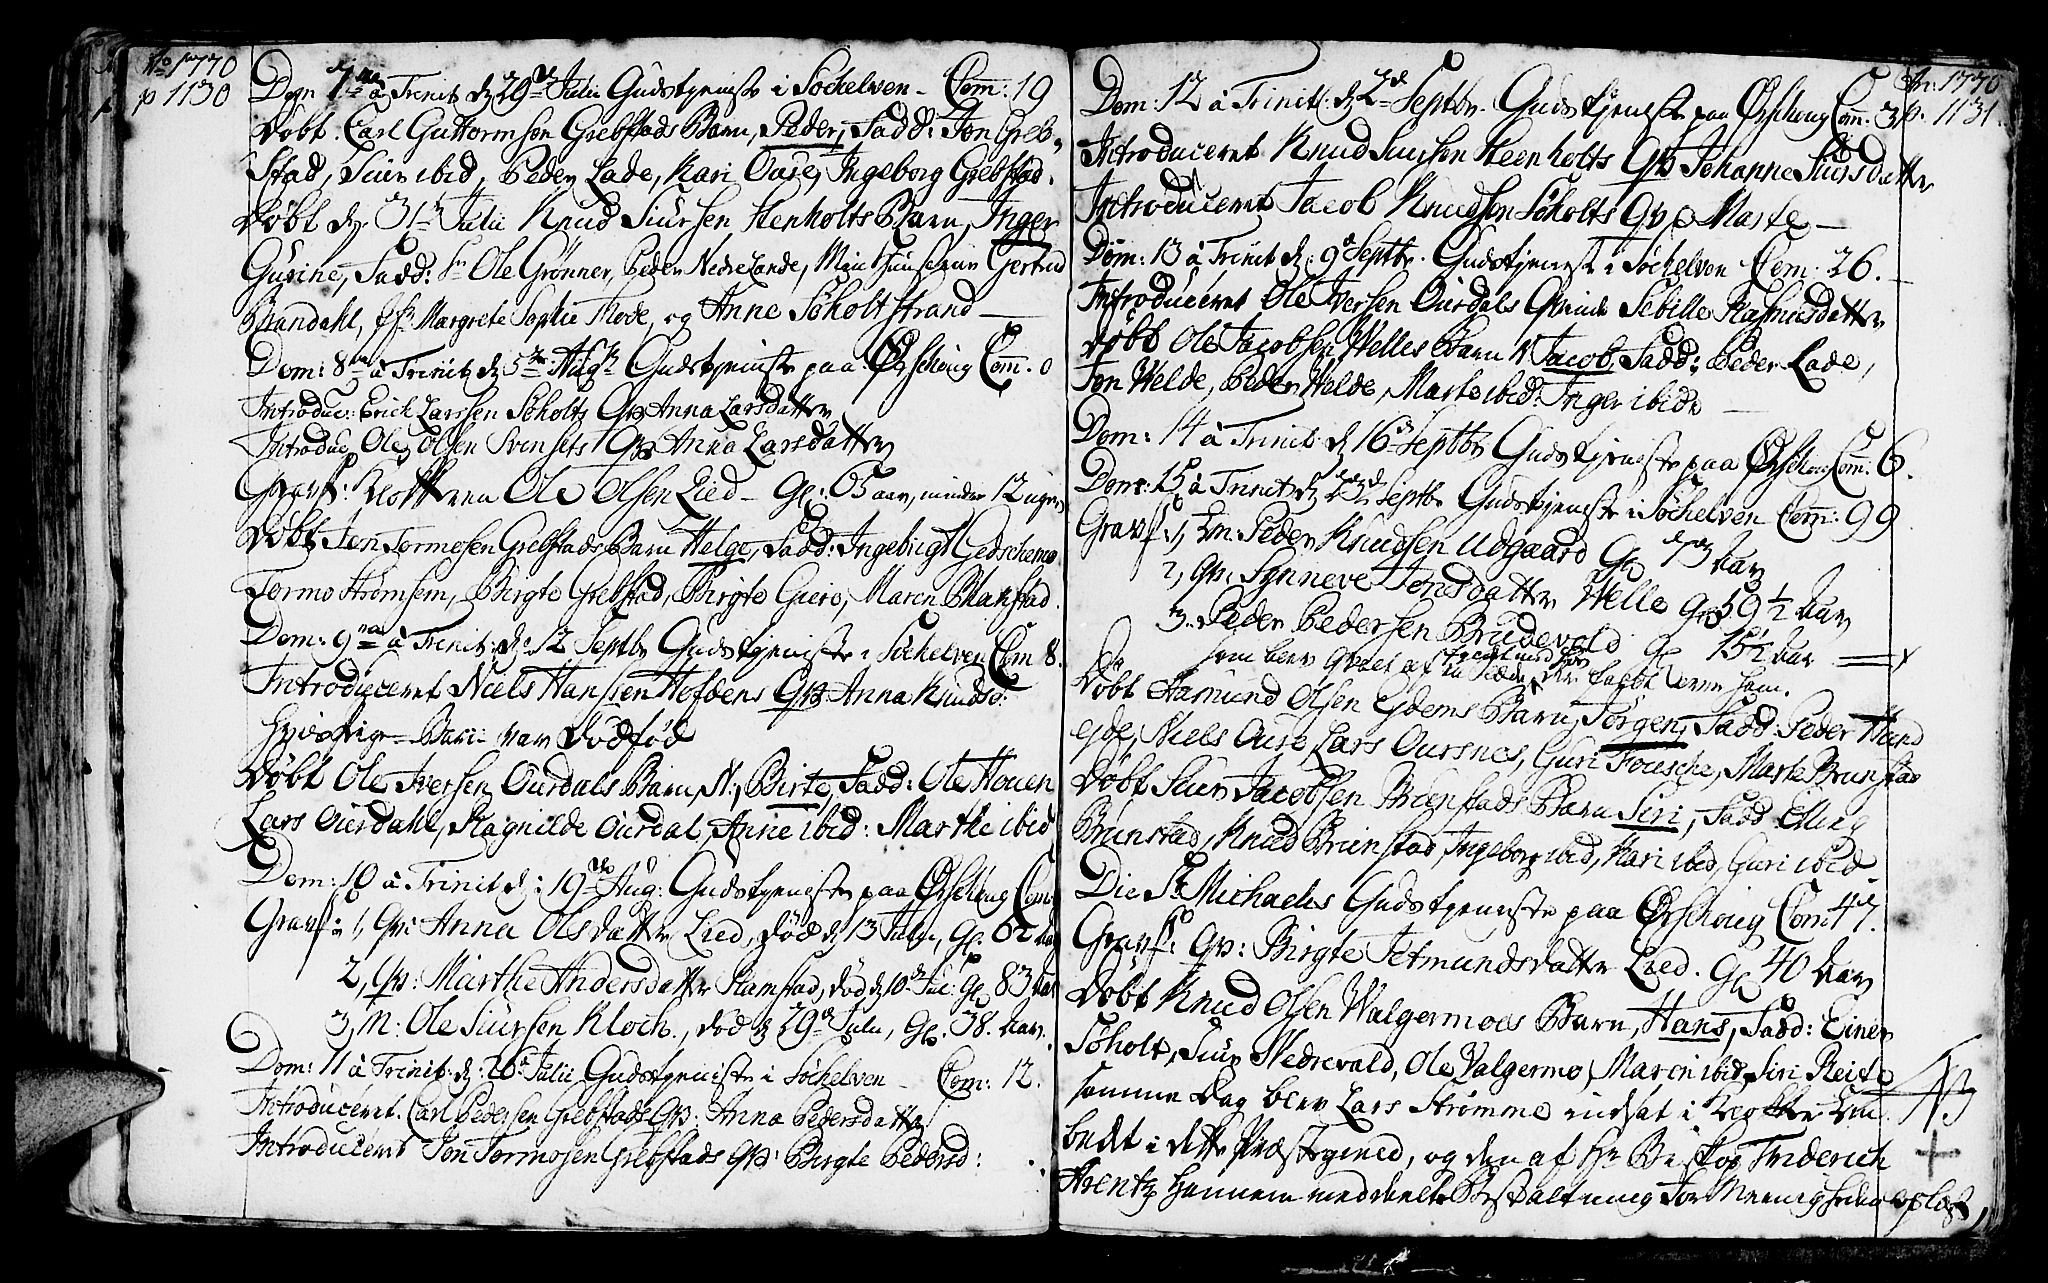 Ao 1770
p 1130
Dom 7ma à Trinit. d 29de Julii Gudstjeniste i Søchelven - Com: 19
Døbt Carl Guttormsen Grebstads Barn, Peder, Fadd: Jon Greb-
stad, Siur ibid, Peder Lade, Kari Oure, Ingeborg Grebstad.
Døbt d 31te Julii Knud Siursen Stenholts Barn, Inger
Gurine, Fadd: Hr Ole Grønner, Peder Nedrelande, Gertrud
Brandahl, Margrete Sophie Thode, og Anne Søholtstrand
Dom: 8va à Trinit d 5te Augti Gudstjeniste paa Ørschoug Com. 0
Introduc: Erich Larssen Søholts Qv Anna Larsdatter
Introduc Ole Olsen Svensets Qv Anna Larsdatter
Gravf: Klokkeren Ole Olsen Lied - Gl: 65 aar, minder 12 uger
Døbt Jon Tormosen Grebstads Barn Helge, Fadd: Ingebrigt
Tormo Strømsem, Birgte Grebstad, Birgte Giere, Maren Ramstad.
Dom: 9na à Trinit: d 12 Septbr Gudstjeniste i Søchelven Com 8.
Introduceret Niels Hanssen Hofdens Qv Anna Knudsd:
hvis Barn var Dødfød
Døbt Ole Iversen Ourdals Barn, N: Birte, Fadd: Ole Houen
Lars Ourdahl, Ragnilde Ourdal, Anne ibid: Marthe ibid
Dom: 10 à Trinit d: 19de Aug: Gudstjeniste paa Ørschoug Com
Gravf: 1, Qv: Anna Olsdatter Lied, død d 13 Julii, Gl. 62 Aar
2, Qv: Marthe Andersdatter Ramstad, død d 10de Jul: Gl 83 Aar
3, M: Ole Siursen Kloch, død d 29de Julii, Gl. 38. Aar.
Dom: 11 à Trinit: d: 26 Julii Gudstjeniste i Søchelven - Com: 12.
Introduceret. Carl Pedersen Grebstads Qv: Anna Pedersdatter
Introduceret Jon Tormosen Grebstads Qv: Birgte Pedersd:
An: 1770
p. 1131
Dom: 12 à Trinit: d 2de Septbr. Gudstjeniste paa Ørschoug Com. 3
Introduceret Knud Siursen Steenholts Qv Johanne Siursdatter
Introduceret Jacob Knudsen Søholts Qv Marte -
Dom: 13 à Trinit d. 9de Septbr. Gudstjeniste i Søchelven Com: 26.
Introduceret Ole Iversen Ourdals Qvinde Sebille Rasmusdatter
Døbt Ole Jacobsen Welles Barn N Jacob, Fadd: Peder Lade,
Jon Welde, Peder Welde, Marte ibid: Inger ibid
Dom: 14 à Trinit: d 16de Septbr Gudstjeniste paa Ørschoug Com: 6.
Dom: 15 à Trinit d 23de Septbr Gudstjeniste i Søchelven Com: 99
Gravf: 1, Em: Peder Knudsen Udgaard Gl 73 Aar
2, Qv: Synneve Jonsdatter Welle Gl 59 1/2 Aar
3. Peder Pedersen Brudevold Gl 15 1/2 Aar
som blev
Døbt Hamund Olsen Ydems Barn, Jørgen, Fadd: Peder Hund
eyde, Niels Oure, Lars Oursnes, Guri Fousche, Marte Brunstad
Døbt Siur Jacobsen Brunstads Barn Siri, Fadd Elling
Brunstad, Knud Brunstad, Ingeborg ibid, Kari ibid, Guri ibid
Die St Michaelis Gudstjeniste paa Ørschoug Com 47.
Gravf: Qv: Birgte Jetmundsdatter Lied. Gl 40 Aar
Døbt Knud Olsen Walgermoes Barn, Hans, Fadd: Einer
Søholt, Siur Nedrevald, Ole Valgermo, Maren ibid, Siri Reite
samme Dag blev Lars Strømme indsat i Klokker Em
bedet i dette Præstegield, og den af Hr Biskop Friderich
Arentz hannem meddeelte Bestaltning for Menigheden oplæst